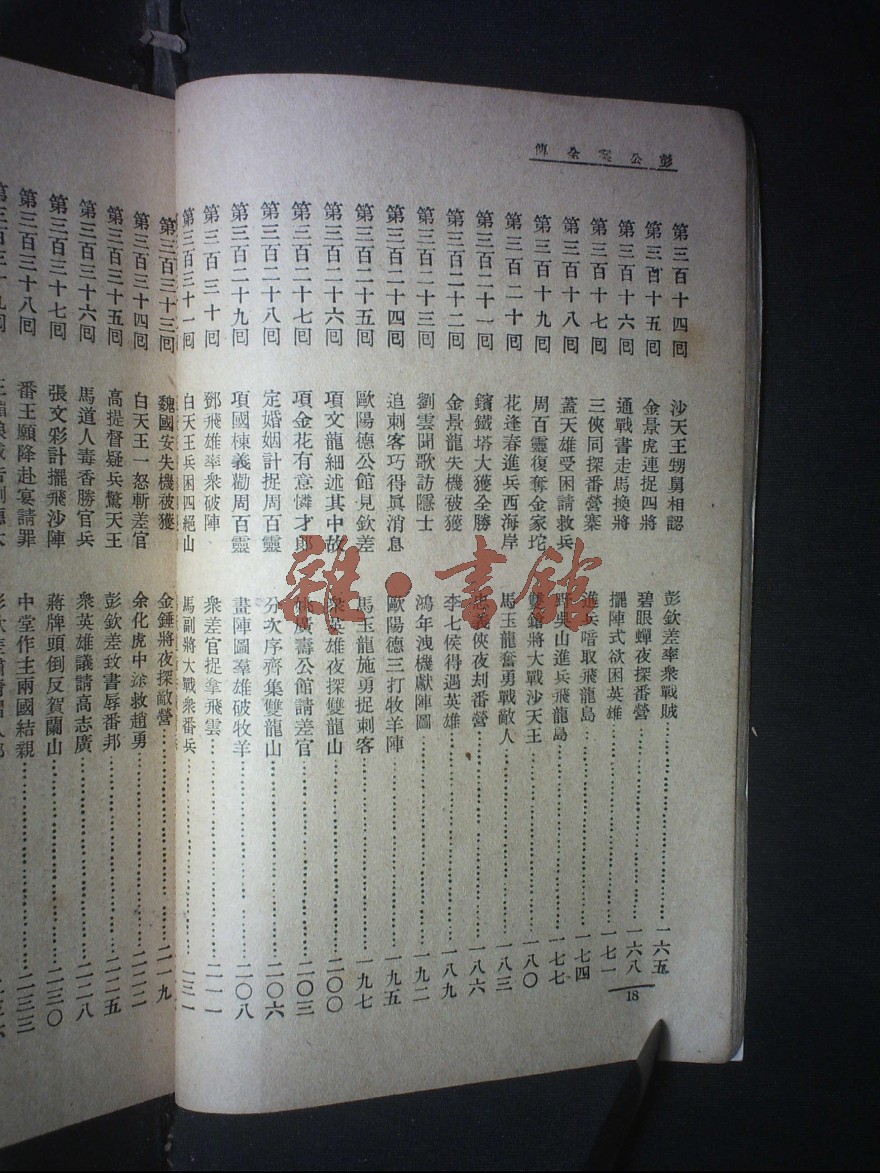 彭公案全傳
第三百十四囘 沙天王甥舅相認 彭欽差率衆戰賊 一六五
第三百十五囘 金景虎連捉四將 碧眼蟬夜探番營 一六八
第三百十六囘 通戰書走馬換將 擺陣式欲困英雄 一七一
第三百十七囘 三俠同探番營寨 進兵喑取飛龍島 一七四
第三百十八囘 蓋天雄受困請救兵 野吳山進兵飛龍島 一七七
第三百十九囘 周百靈復奪金家坨 雙錘將大戰沙天王 一八〇
第三百二十囘 花逢春進兵西海岸 馬玉龍奮勇戰敵人 一八三
第三百二十一囘 鑌鐵塔大獲全勝 忠義俠夜刦番營 一八六
第三百二十二囘 金景龍失機被獲 李七侯得遇英雄 一八九
第三百二十三囘 劉雲聞歌訪隱士 鴻年洩機獻陣圖 一九二
第三百二十四囘 追刺客巧得眞消息 歐陽德三打牧羊陣 一九五
第三百二十五囘 歐陽德公館見欽差 馬玉龍施勇捉刺客 一九七
第三百二十六囘 項文龍細述其中故 衆英雄夜探雙龍山 二〇〇
第三百二十七囘 項金花有意憐才郎 姚廣壽公館請差官 二〇三
第三百二十八囘 定婚姻計捉周百靈 分次序齊集雙龍山 二〇六
第三百二十九囘 項國棟義勸周百靈 畫陣圖羣雄破牧羊 二〇八
第三百三十囘 鄧飛雄率衆破陣 衆差官捉拿飛雲 二一一
第三百三十一囘 白天王兵困四絕山 馬副將大戰衆番兵
18
第三百三十三囘 魏國安失機被獲 金錘將夜探敵營 二一九
第三百三十四囘 白天王一怒斬差官 余化虎中途救趙勇 二二二
第三百三十五囘 高提督疑兵驚天王 彭欽差致書辱番邦 二二五
第三百三十六囘 馬道人毒香勝官兵 衆英雄議請高志廣 二二八
第三百三十七囘 張文彩計擺飛沙陣 蔣牌頭倒反賀蘭山 二三〇
第三百三十八囘 番王願降赴宴請罪 中堂作主兩國結親 二三三
雜·書館